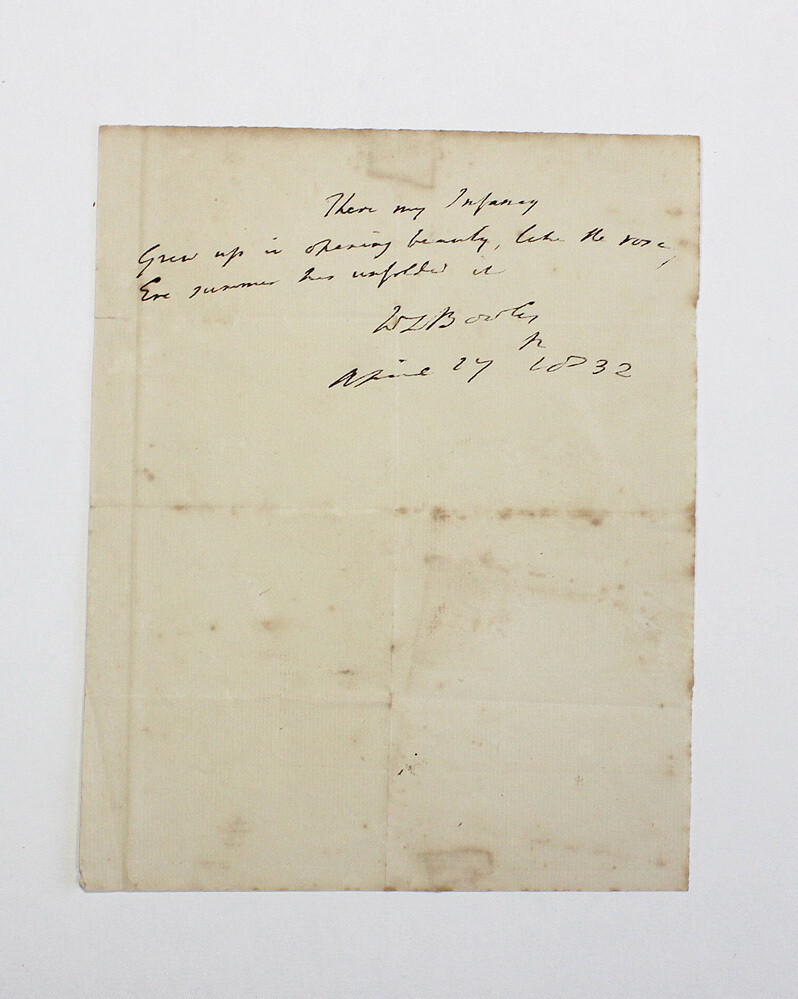 There my Infancy
Grew up in opening beauty, like the rose,
Ere summer has unfolded it
WLBowles
April 27th 1832